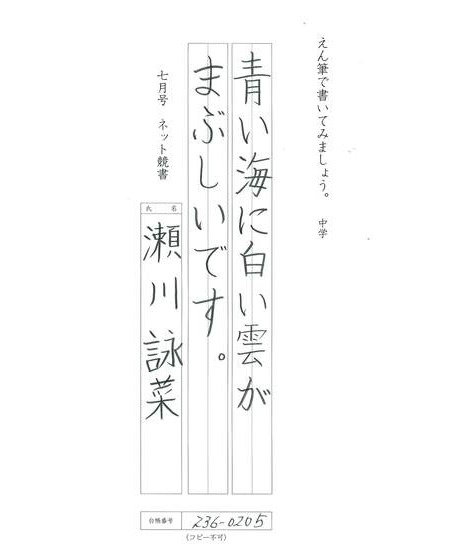 えん筆で書いてみましょう。 中学
青い海に白い雲が
まぶしいです。
七月号 ネット競書
氏 名
瀬川詠菜
台帳番号 236-0205
(コピー不可)